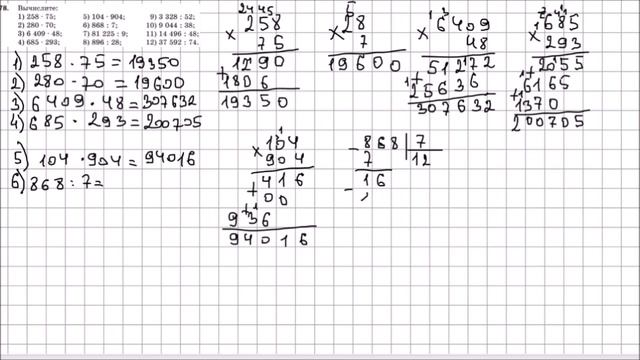 78. Вычислите:
1) 258 · 75; 5) 104 · 904; 9) 3 328 : 52;
2) 280 · 70; 6) 868 : 7; 10) 9 044 : 38;
3) 6 409 · 48; 7) 81 225 : 9; 11) 14 496 : 48;
4) 685 · 293; 8) 896 : 28; 12) 37 592 : 74.
1) 258 · 75 = 19350
2) 280 · 70 = 19600
3) 6409 · 48 = 307632
4) 685 · 293 = 200705
5) 104 · 904 = 94016
6) 868 : 7 =
2445
× 258
75
1290
+ 1806
19350
5
× 28
7
19600
1 3
× 6409
48
51272
+ 25636
307632
× 685
293
2055
+ 6165
+ 1370
200705
× 104
904
416
+ 00
936
94016
- 868 7
7 12
- 16